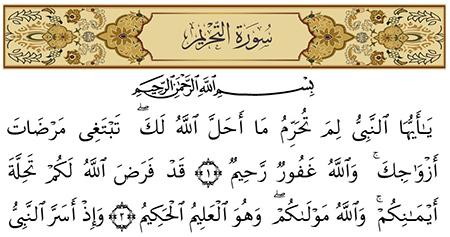 سُورَةُ التَّحْرِيمِ
بِسْمِ اللَّهِ الرَّحْمَٰنِ الرَّحِيمِ
يَٰٓأَيُّهَا النَّبِىُّ لِمَ تُحَرِّمُ مَآ أَحَلَّ اللَّهُ لَكَ ۖ تَبْتَغِى مَرْضَاتَ
أَزْوَٰجِكَ ۚ وَاللَّهُ غَفُورٌ رَّحِيمٌ ﴿١﴾ قَدْ فَرَضَ اللَّهُ لَكُمْ تَحِلَّةَ
أَيْمَٰنِكُمْ ۚ وَاللَّهُ مَوْلَىٰكُمْ ۖ وَهُوَ الْعَلِيمُ الْحَكِيمُ ﴿٢﴾ وَإِذْ أَسَرَّ النَّبِىُّ